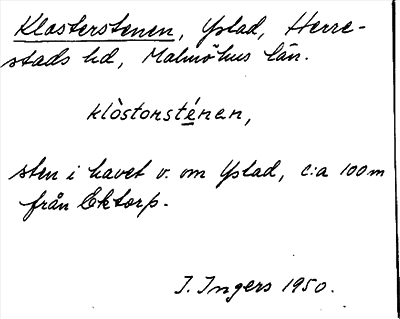 Klosterstenen, Ystad, Herre-
stads hd, Malmöhus län.
klòstorsténen,
sten i havet v. om Ystad, c:a 100 m
från Ektorp.
I. Ingers 1950.